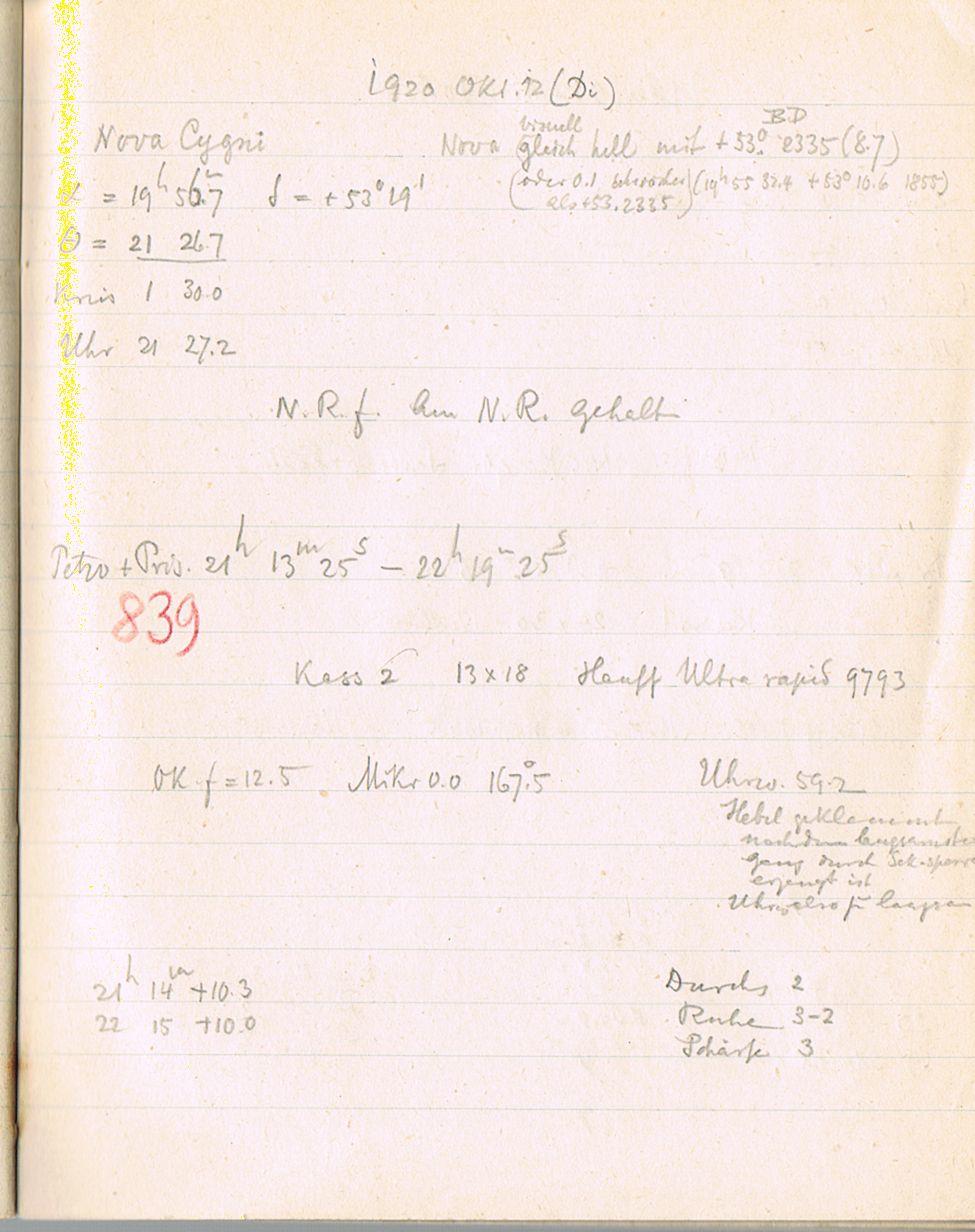 1920 Okt. 12 (Di)
Nova Cygni
Nova visuell gleich hell mit BD +53° 2335 (8.7)
(oder 0.1 schwächer als +53.2335) (19h 55 32.4 +53° 10.6 1855)
α = 19h 56.7m δ = +53° 19'
θ = 21 26.7
Kreis 1 30.0
Uhr 21 27.2
N.R.f. Am N.R. gehalt
Petzo + Pris. 21h 13m 25s – 22h 19m 25s
839
Kass 2 13 x 18 Hauff Ultra rapid 9793
OK f = 12.5 Mikr 0.0 167.°5
Uhrw. 59.2
Hebel geklemmt
nachdem langsamste
gang durch Sek.sperre
erzeugt ist
Uhrw. also zu langsam
21h 14m +10.3
22 15 +10.0
Durchs 2
Ruhe 3-2
Schärfe 3